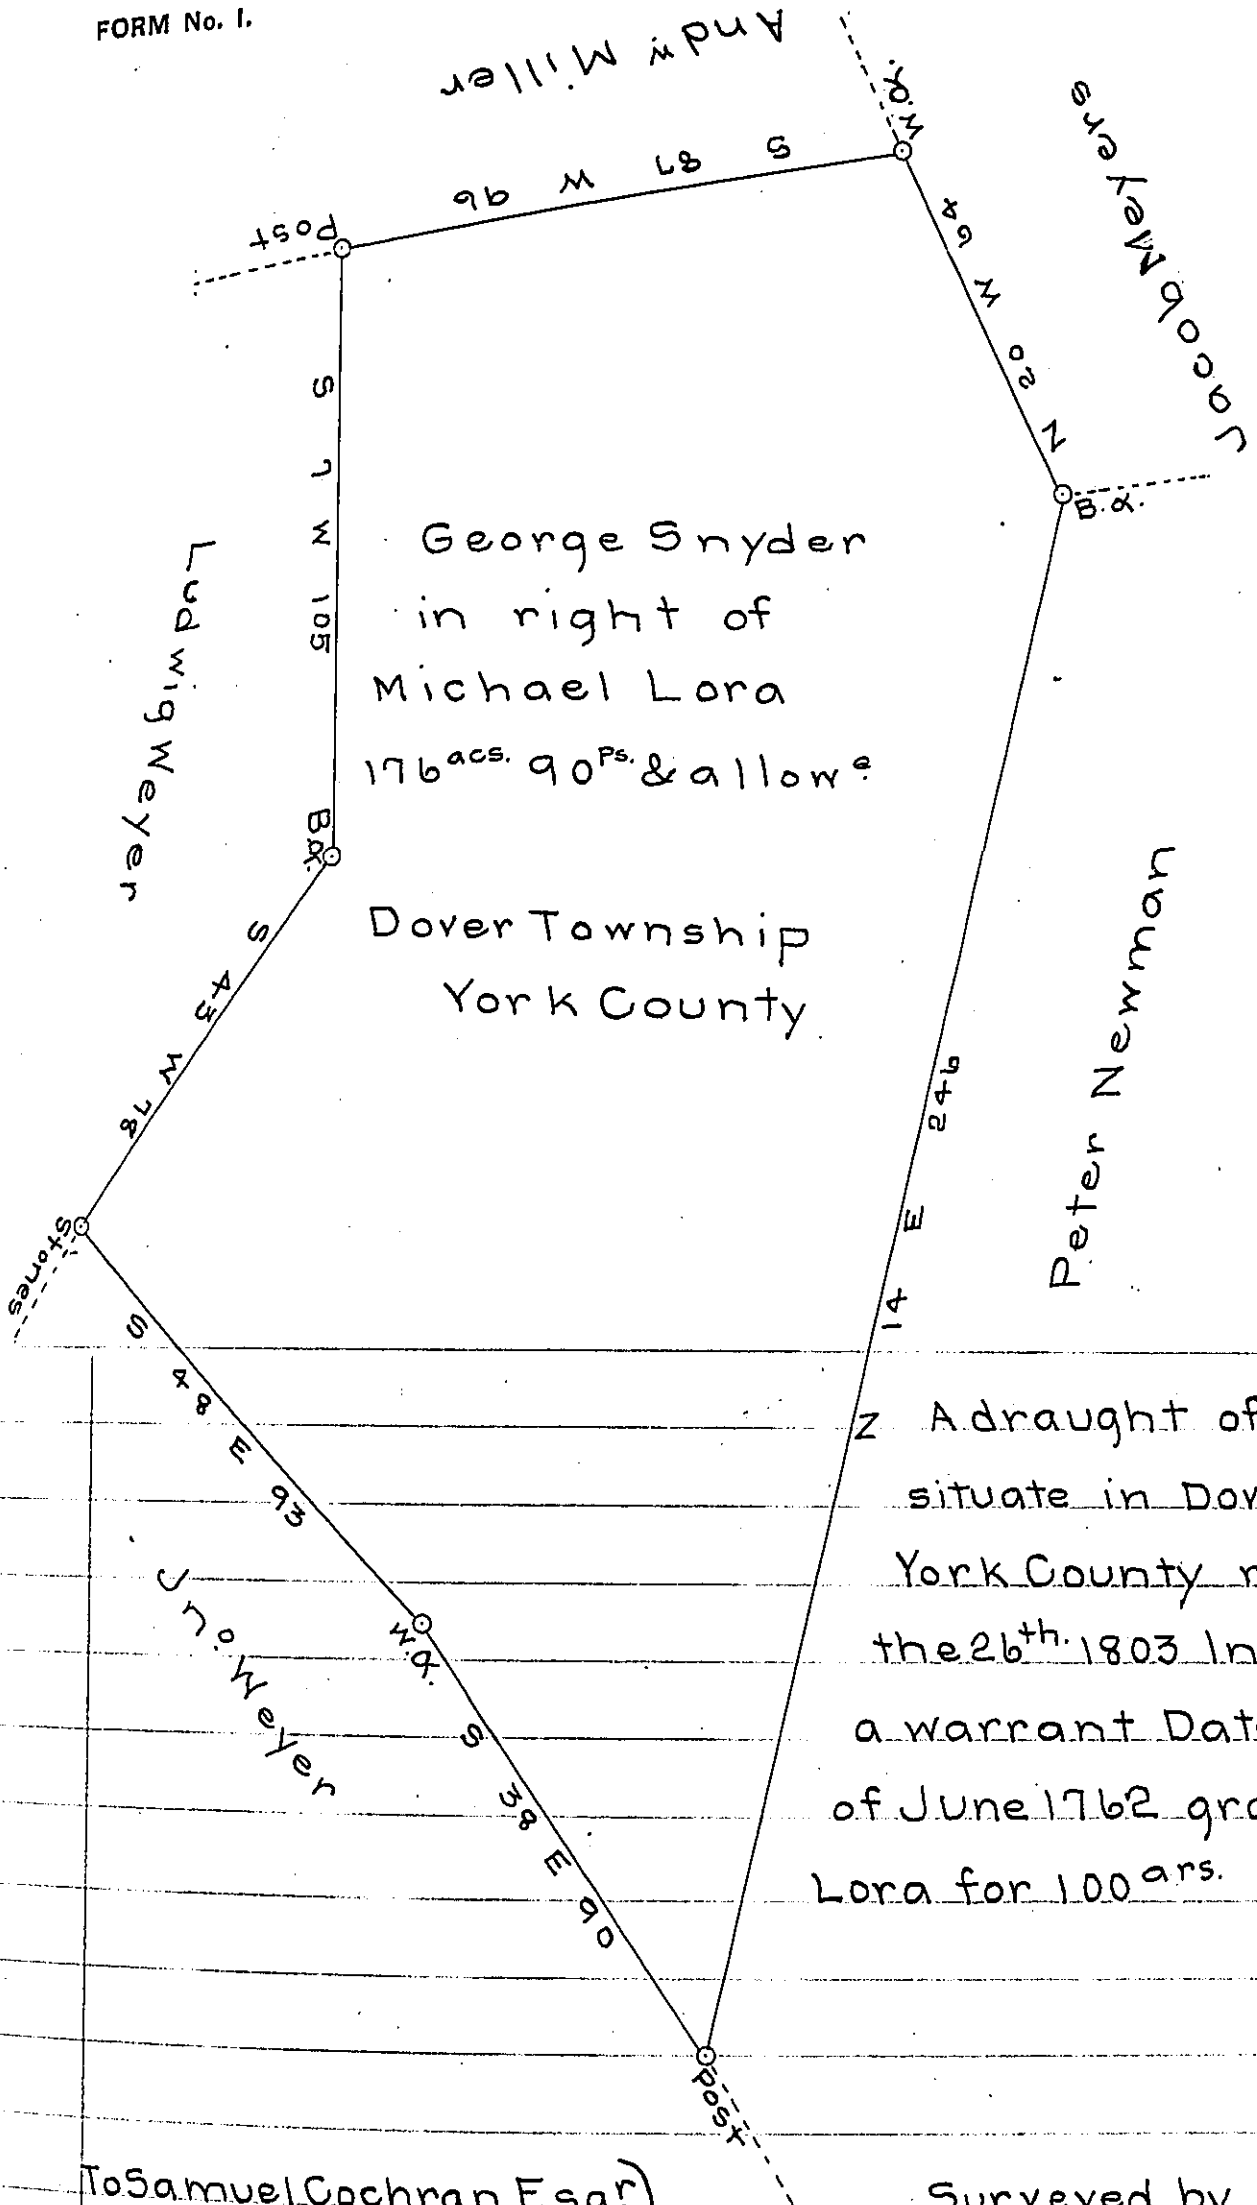 FORM No. 1.
Andw Miller
Jacob Meyers
W.O.
S 87 W 96
Post
N 20 W 64
B.O.
S 7 W 105
Ludwig Weyer
George Snyder
in right of
Michael Lora
176 acs. 90 Ps. & allowe
B.O.
Dover Township
York County
S 43 W 78
Peter Newman
N 14 E 246
Stones
S 48 E 93
Jno. Meyer
W.O.
S 38 E 90
Post
A draught of
situate in Dov
York County
the 26th. 1803 In
a warrant Dat
of June 1762 gra
Lora for 100 ars.
To Samuel Cochran Esqr)
Surveyed by